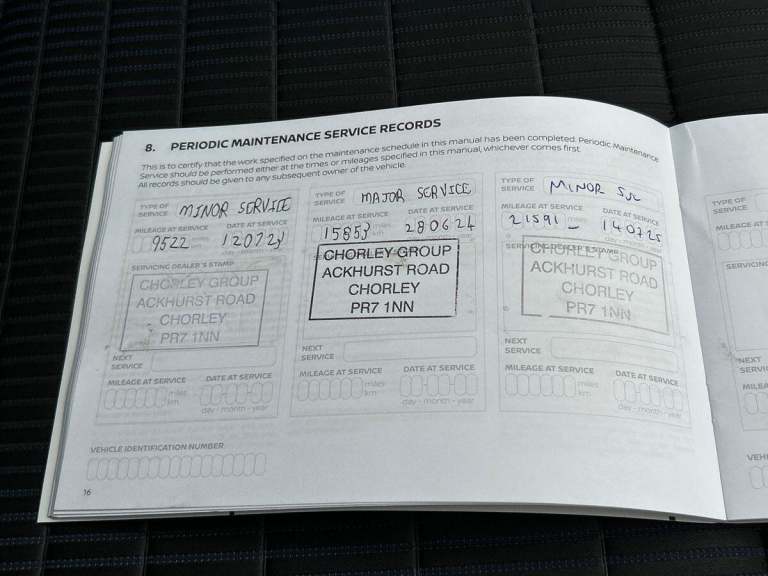 8. PERIODIC MAINTENANCE SERVICE RECORDS
This is to certify that the work specified on the maintenance schedule in this manual has been completed. Periodic Maintenance
Service should be performed either at the times or mileages specified in this manual, whichever comes first.
All records should be given to any subsequent owner of the vehicle.
TYPE OF
SERVICE
MINOR SERVICE
MILEAGE AT SERVICE DATE AT SERVICE
9522 miles
km
day - month - year
SERVICING DEALER'S STAMP
CHORLEY GROUP
ACKHURST ROAD
CHORLEY
PR7 1NN
NEXT
SERVICE
MILEAGE AT SERVICE DATE AT SERVICE
miles
km
day - month - year
TYPE OF
SERVICE
MAJOR SERVICE
MILEAGE AT SERVICE DATE AT SERVICE
15853 miles
km
280624
CHORLEY GROUP
ACKHURST ROAD
CHORLEY
PR7 1NN
NEXT
SERVICE
MILEAGE AT SERVICE DATE AT SERVICE
miles
km
day - month - year
TYPE OF
SERVICE
MINOR
MILEAGE AT SERVICE DATE AT SERVICE
21591 miles
140725
day - month - year
SERVICING DEALER'S STAMP
CHORLEY GROUP
ACKHURST ROAD
CHORLEY
PR7 1NN
NEXT
SERVICE
MILEAGE AT SERVICE DATE AT SERVICE
miles
km
day - month - year
VEHICLE IDENTIFICATION NUMBER
16
TYPE OF
SERVICE
MILEAGE AT
SERVICING
NEXT